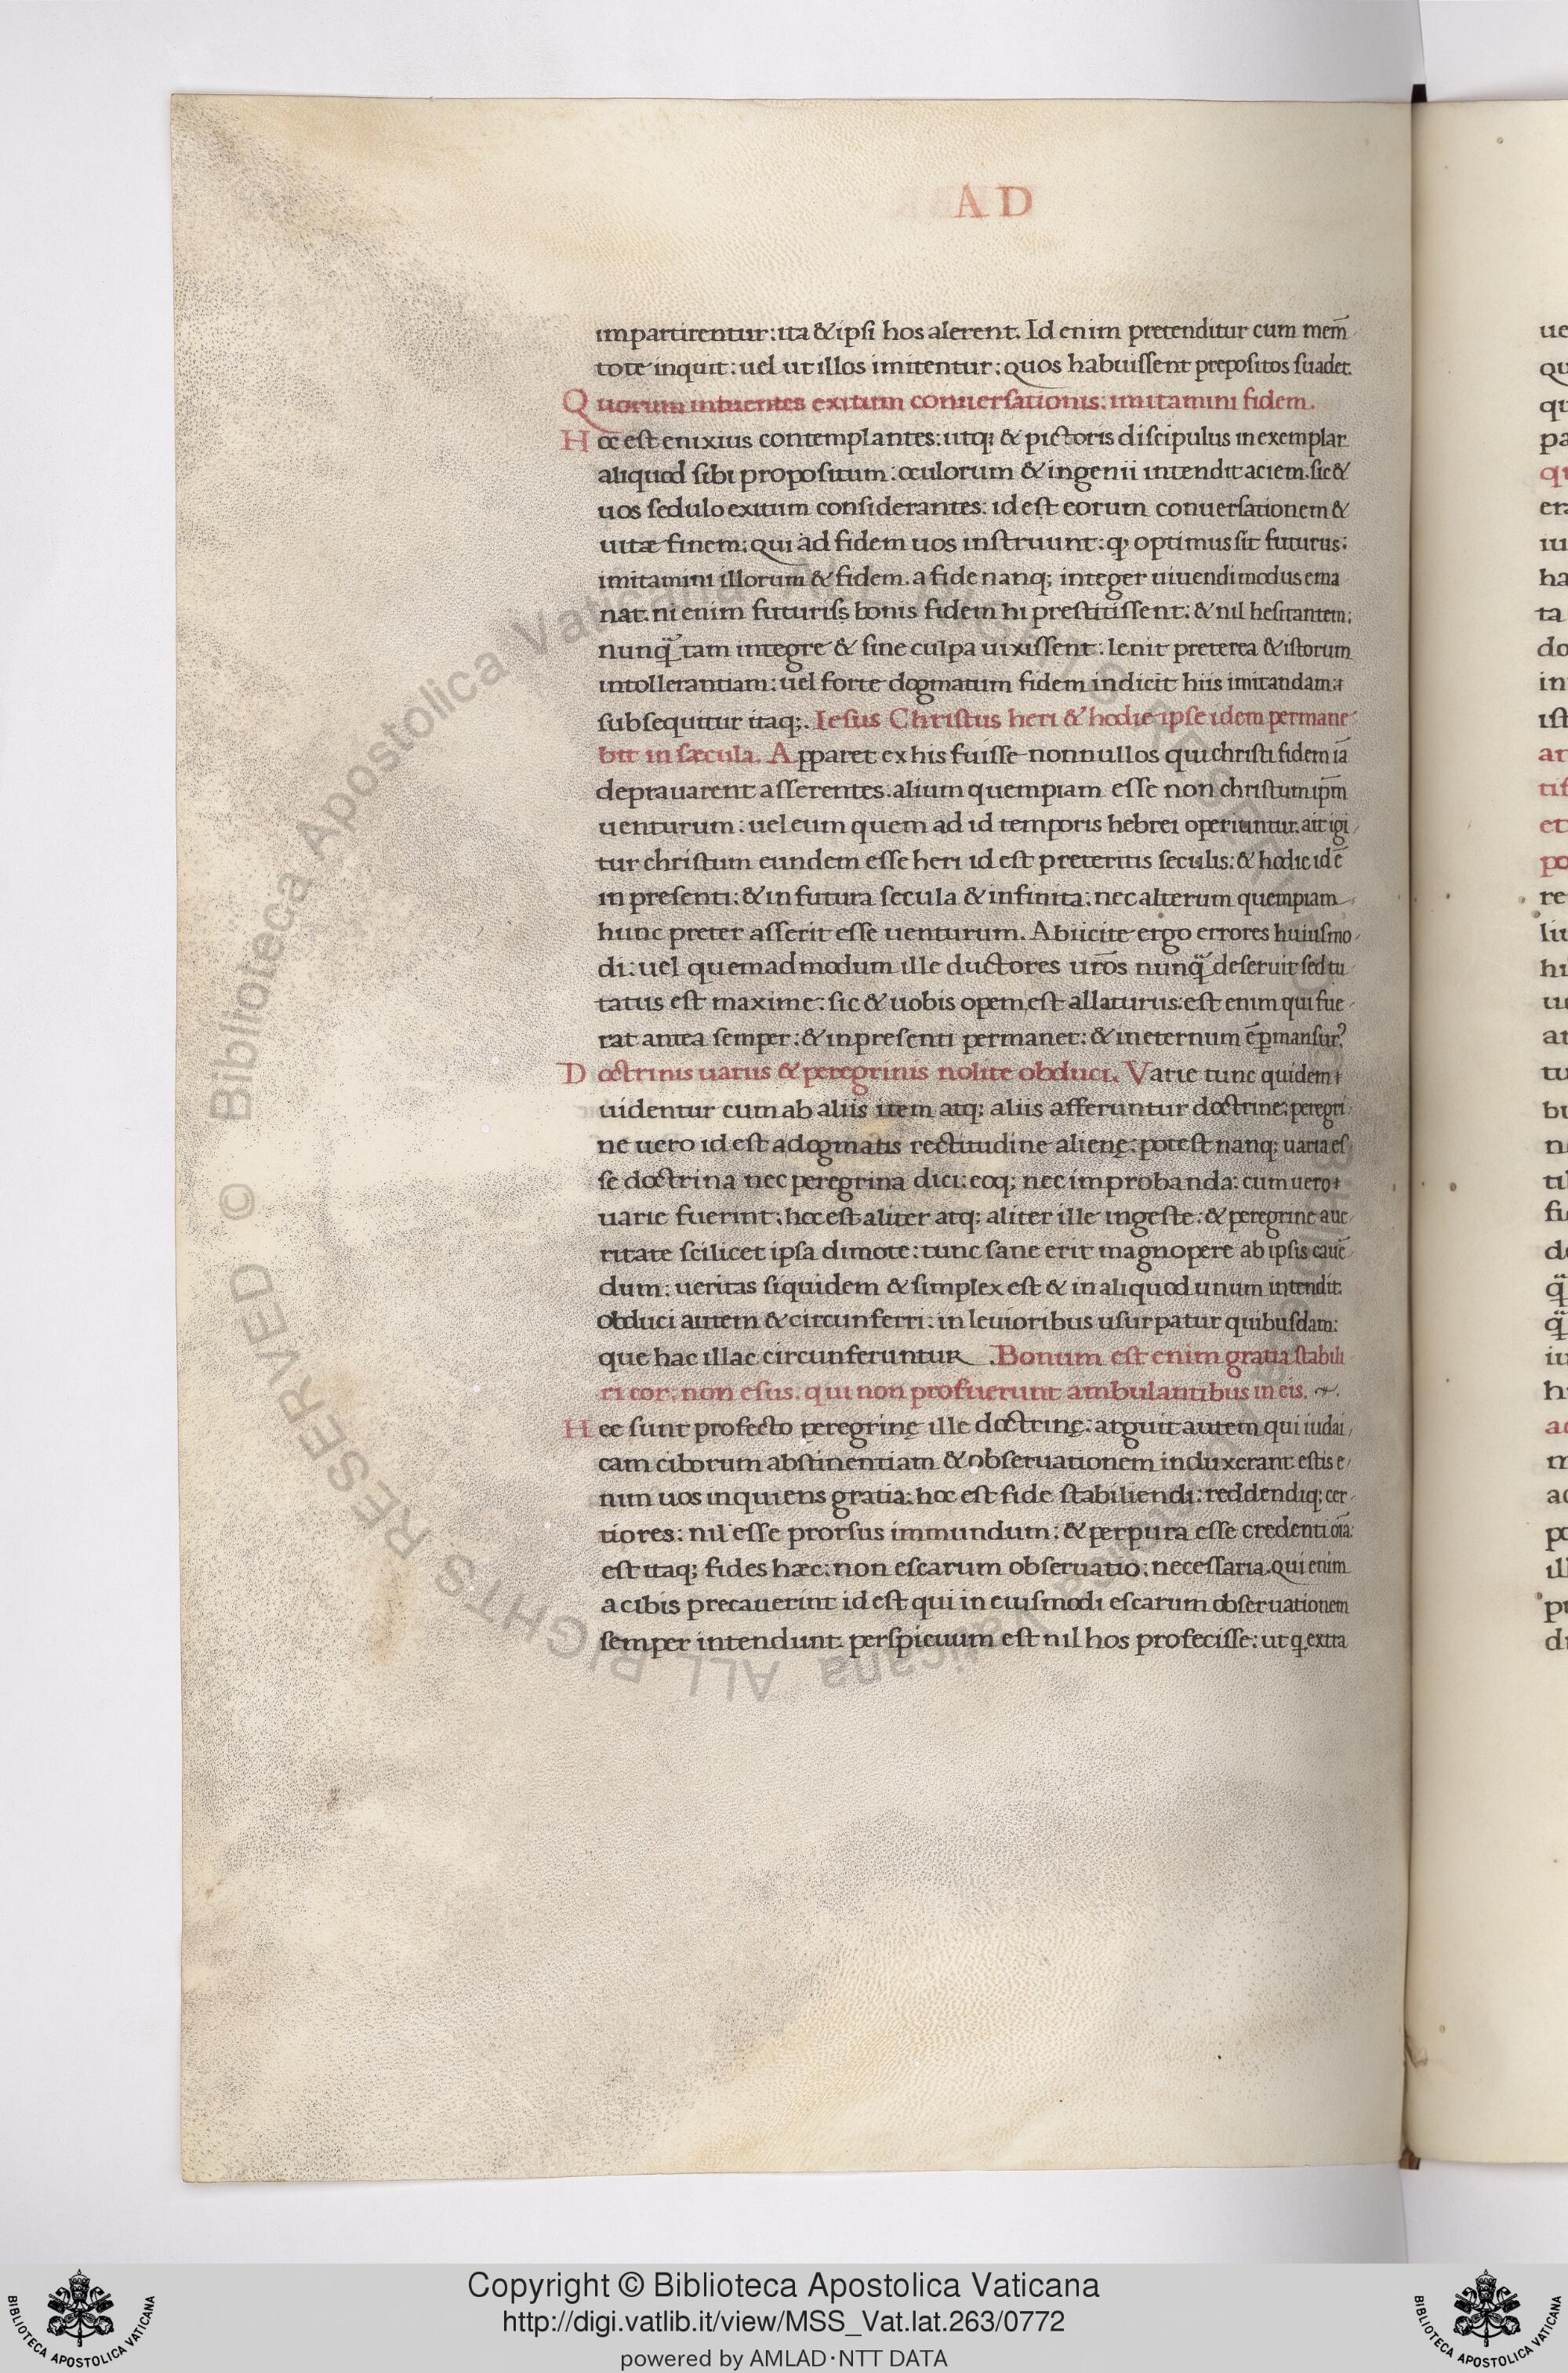 AD
impartirentur: ita & ipsi hos alerent. Id enim pretenditur cum mem̄
tote inquit: uel ut illos imitentur: quos habuissent prepositos suadet.
Quorum intuentes exitum conuersationis: imitamini fidem.
Hoc est enixius contemplantes: utq; & pictoris discipulus in exemplar
aliquod sibi propositum: oculorum & ingenii intendit aciem. sic &
uos sedulo exitum considerantes: id est eorum conuersationem &
uitæ finem: qui ad fidem uos instruunt: ꝙ optimus sit futurus:
imitamini illorum & fidem. a fide nanq; integer uiuendi modus ema
nat. ni enim futuris bonis fidem hi prestitissent: & nil hesitantem:
nunq̄ tam integre & sine culpa uixissent. lenit preterea & istorum
intollerantiam: uel forte dogmatum fidem indicit hiis imitandam:
subsequitur itaq;. Iesus Christus heri & hodie ipse idem permane
bit in sæcula. Apparet ex his fuisse nonnullos qui christi fidem iā
deprauarent asserentes. alium quempiam esse non christum ip̄m
uenturum: uel eum quem ad id temporis hebrei operiuntur. ait igi
tur christum eundem esse heri id est preteritis seculis: & hodie id ē
in presenti: & in futura secula & infinita: nec alterum quempiam
hunc preter asserit esse uenturum. Abiicite ergo errores huiusmo
di: uel quemadmodum ille ductores ur̄os nunq̄ deseruit sed tu
tatus est maxime: sic & uobis opem est allaturus: est enim qui fue
rat antea semper: & in presenti permanet: & in eternum ē ꝑmansur⁹
Doctrinis uariis & peregrinis nolite obduci. Varie tunc quidem
uidentur cum ab aliis item atq; aliis afferuntur doctrine: peregri
ne uero id est a dogmatis rectitudine alienę: potest nanq; uaria es
se doctrina nec peregrina dici: eoq; nec improbanda: cum uero
uarie fuerint: hoc est aliter atq; aliter ille ingeste: & peregrine auc
ritate scilicet ipsa dimote: tunc sane erit magnopere ab ipsis cauē
dum: ueritas siquidem & simplex est & in aliquod unum intendit:
obduci autem & circunferri: in leuioribus usurpatur quibusdam:
que hac illac circunferuntur. Bonum est enim gratia stabili
ri cor: non esus. qui non profuerunt ambulantibus in eis.
Hee sunt profecto peregrinę ille doctrinę: arguit autem qui iudai
cam ciborum abstinentiam & obseruationem induxerant: estis e
nim uos inquiens gratia: hoc est fide stabiliendi: reddendiq; cer
tiores: nil esse prorsus immundum: & perpura esse credenti oīa:
est itaq; fides hæc: non escarum obseruatio: necessaria. qui enim
a cibis precauerint id est qui in eiusmodi escarum obseruationem
semper intendunt. perspicuum est nil hos profecisse: ut q extra
Copyright © Biblioteca Apostolica Vaticana
http://digi.vatlib.it/view/MSS_Vat.lat.263/0772
powered by AMLAD·NTT DATA